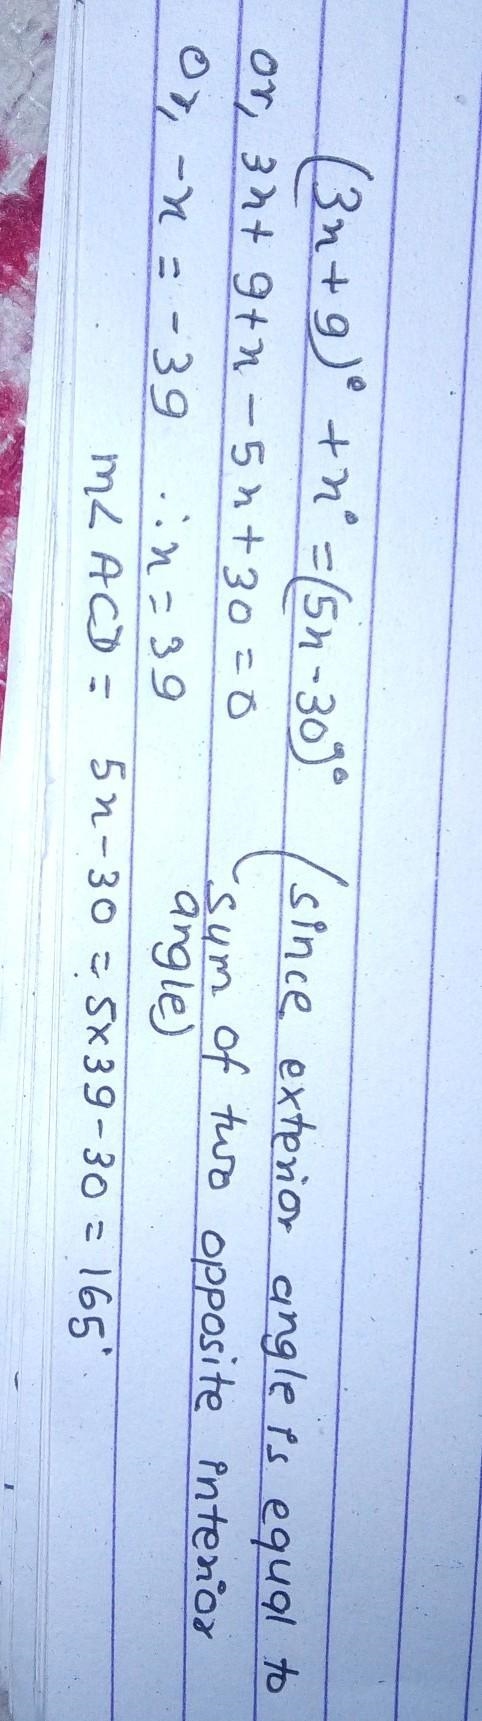 (3x+9)° + x° = (5x-30)° (since exterior angle is equal to
or, 3x+9+x-5x+30=0 sum of two opposite interior
or, -x = -39 ∴x=39 angle)
m∠ACD = 5x-30 = 5×39-30 = 165°